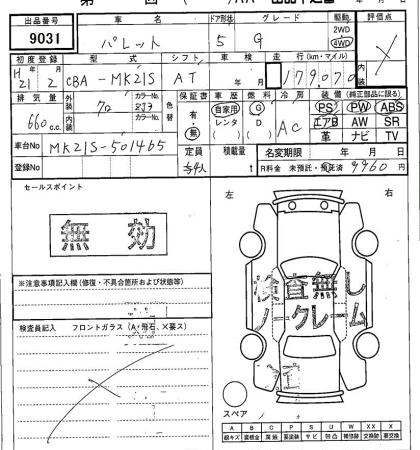 出品番号 車名 ドア形状 グレード 駆動 評価点
9031 パレット 5 G 2WD 4WD ×
初度登録 型式 シフト 車検 走行(km・マイル) 内装
H21年2月 CBA-MK21S AT 年 月 179,070
排気量 外装 カラーNo. 色替 保証書 車歴 燃料 冷房 装備(純正部品に限る)
660c.c. クロ ZJ3 有・無 自家用 レンタ G D AC PS PW ABS
内装 カラーNo. エアB AW SR
革 ナビ TV
車台No MK21S-501465 定員 4人 積載量 t 名変期限 年 月 日
登録No R料金 未預託・預託済 9960円
セールスポイント
無効
左 右
※注意事項記入欄(修復・不具合箇所および状態等)
検査員記入 フロントガラス(A・飛石、X要ス)
検査無し
ノークレーム
スペア
A B C P S U W X XX
線キズ 要板金 腐蝕 要塗装 サビ 凹凸 補修跡 交換跡 要交換